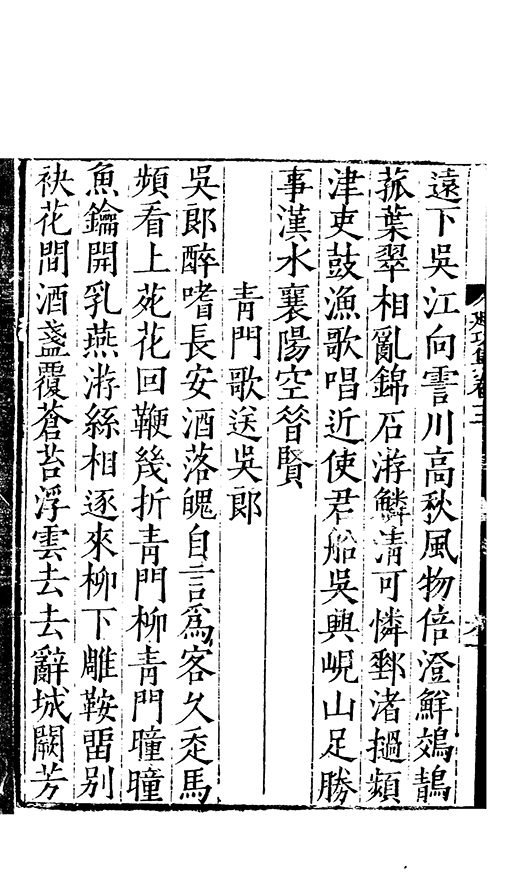 遠下吳江向霅川高秋風物倍澄鮮鵁鶄
菰葉翠相亂錦石游鱗清可憐鄴渚撾頻
津吏鼓漁歌唱近使君船吳興峴山足勝
事漢水襄陽空晉賢
青門歌送吳郎
吳郎醉嗜長安酒落魄自言為客久走馬
頻看上苑花回鞭幾折青門柳青門曈曈
魚鑰開乳燕游絲相逐來柳下雕鞍留別
袂花間酒盞覆蒼苔浮雲去去辭城闕芳
集卷三